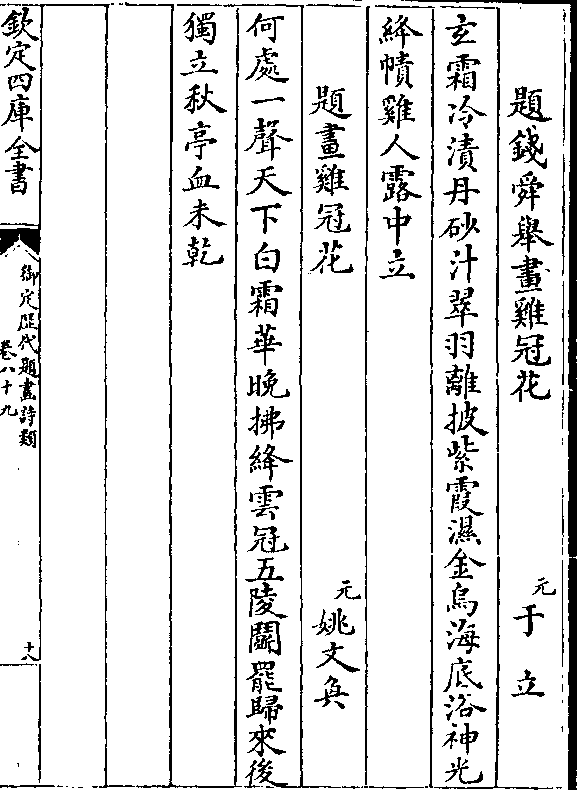 題錢舜舉畫雞冠花
元于立
玄霜冷漬丹砂汁翠羽離披紫霞濕金烏海底浴神光
絳幘雞人露中立
題畫雞冠花
元姚文奐
何處一聲天下白霜華晚拂絳雲冠五陵鬬罷歸來後
獨立秋亭血未乾
欽定四庫全書
御定歷代題畫詩類
卷八十九
十八